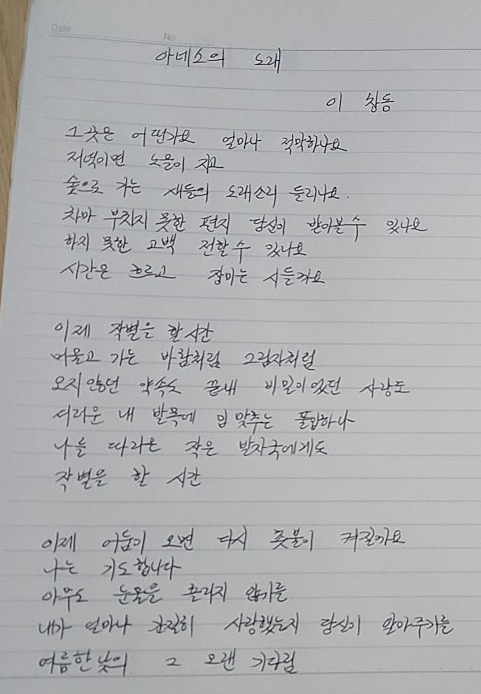 Date
No
아네스의 노래
이 창동
그곳은 어떤가요 얼마나 적막하나요
저녁이면 노을이 지고
숲으로 가는 새들의 노래소리 들리나요.
차마 부치지 못한 편지 당신이 받아볼 수 있나요
하지 못한 고백 전할 수 있나요
시간은 흐르고 장미는 시들까요
이제 작별을 할 시간
머물고 가는 바람처럼 그림자처럼
오지 않던 약속도 끝내 비밀이었던 사랑도
서러운 내 발목에 입 맞추는 풀잎하나
나를 따라온 작은 발자국에게도
작별을 할 시간
이제 어둠이 오면 다시 촛불이 켜질까요
나는 기도합니다
아무도 눈물을 흘리지 않기를
내가 얼마나 간절히 사랑했는지 당신이 알아주기를
여름한낮의 그 오랜 기다림